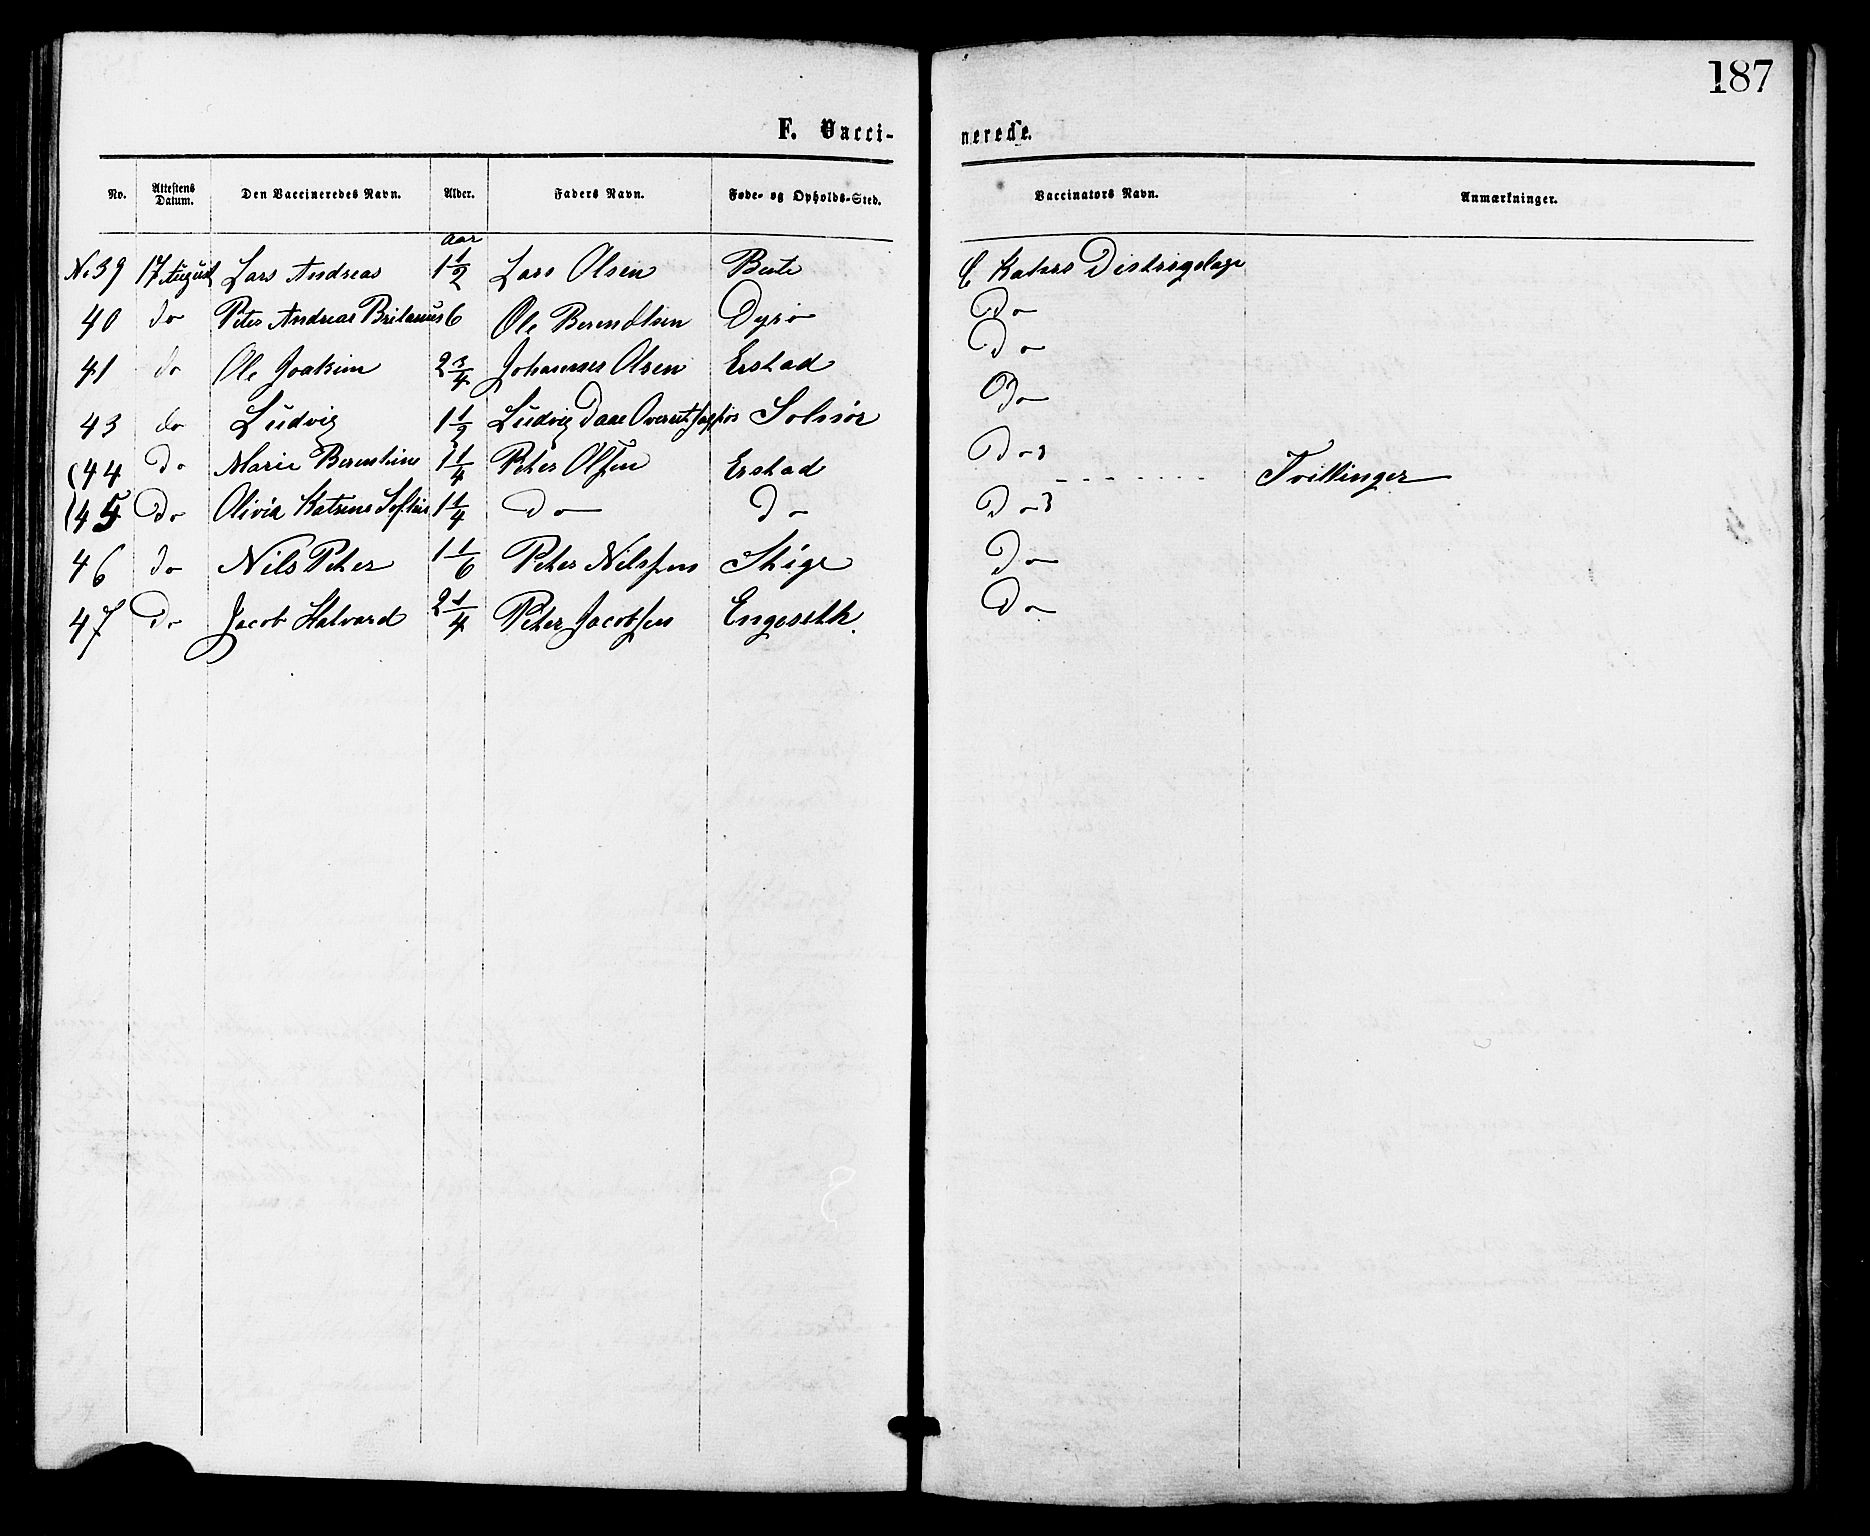 187
F. Vacci-nerede.
No. Attestens Datum. Den Vaccineredes Navn. Alder. Faders Navn. Føde- og Opholds-Sted. Vaccinators Navn. Anmærkninger.
Aar
No 39 17 August Lars Andreas 1 1/2 Lars Olsen C Distrigslæge
40 do Peter Andreas 6 Ole Berendtsen Dyrø Do
41 do Ole Joakim 2 3/4 Johannes Olsen Erstad Do
Do
43 do Ludvig 1 1/2 Ludvig Daae Solnør
(44 Do Marie Berentine 1 1/4 Peter Olsen Erstad Do Tvillinger
(45 Do Olivia Katrine 1 1/4 Do Do Do
46 do Nils Peter 1 1/6 Peter Nilssen Skige Do
47 Do Jacob Halvard 2 1/4 Peter Jacobsen Engeseth. Do